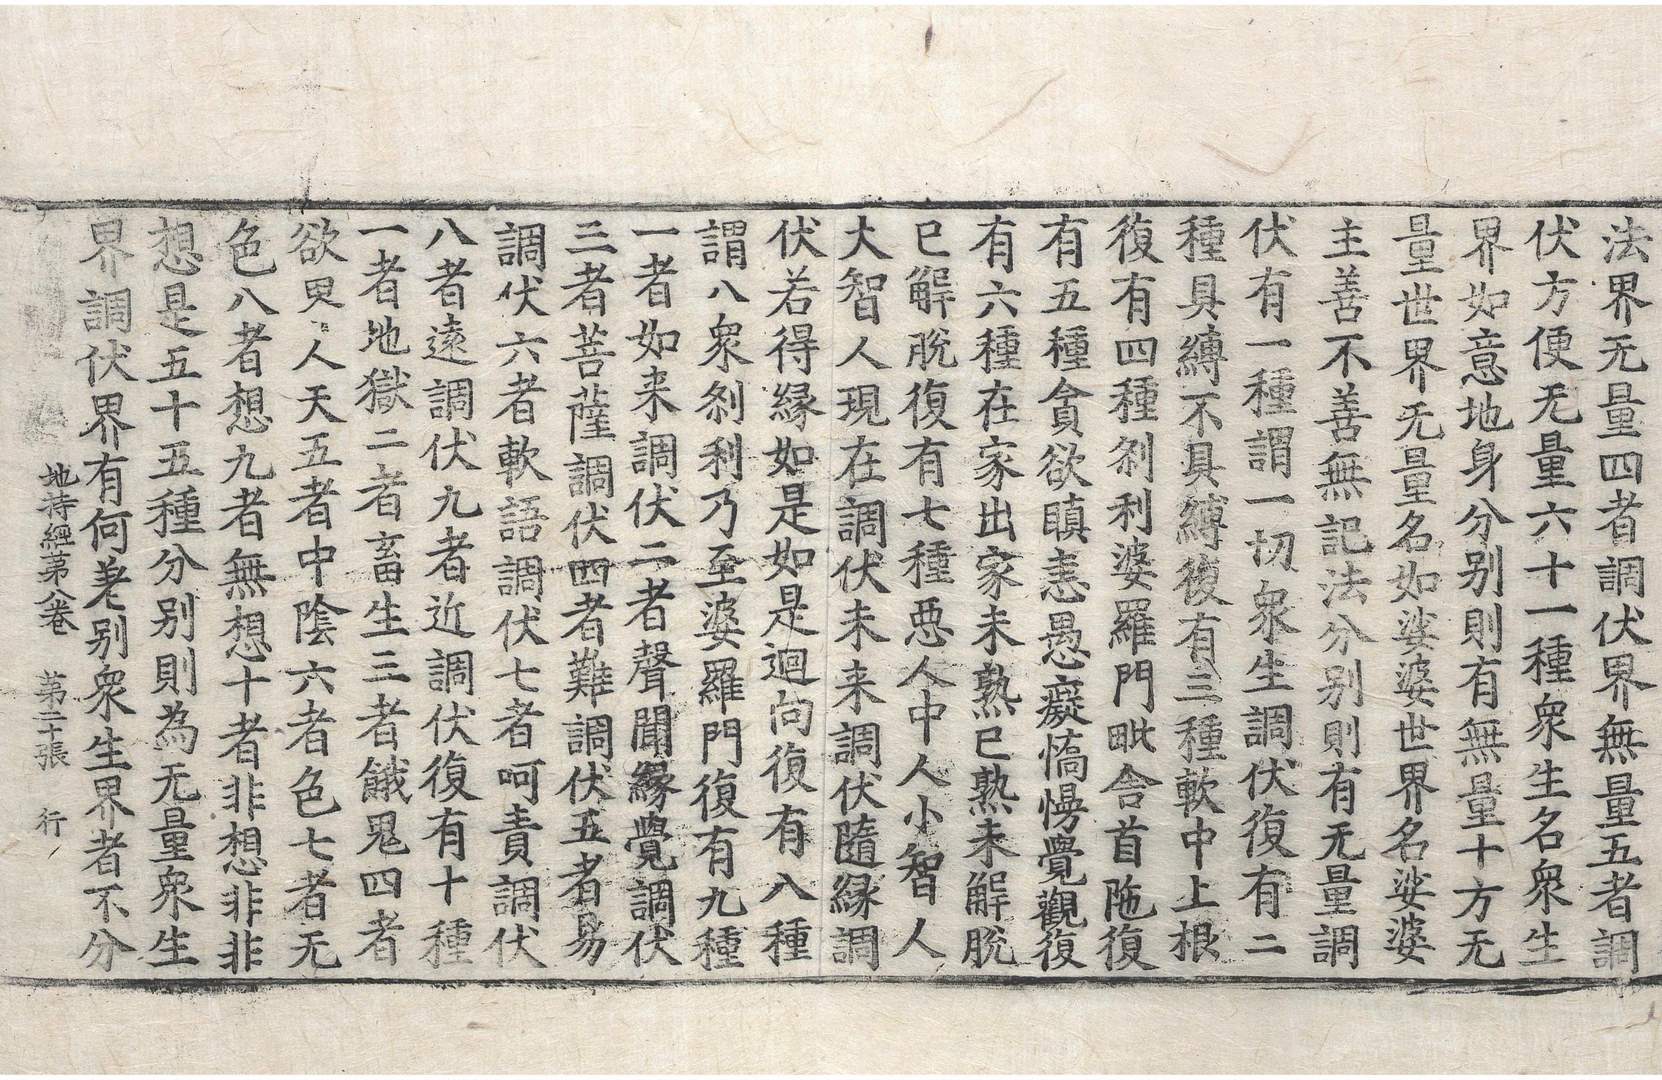 法界无量四者調伏界無量五者調
伏方便无量六十一種衆生名衆生
界如意地身分别則有無量十方无
量世界无量名如娑婆世界名娑婆
主善不善無記法分别則有无量調
伏有一種謂一切衆生調伏復有二
種具縛不具縛復有三種軟中上根
復有四種刹利婆羅門毗舍首陁復
有五種貪欲瞋恚愚癡憍慢覺觀復
有六種在家出家未熟已熟未解脫
已解脫復有七種惡人中人小智人
大智人現在調伏未来調伏隨緣調
伏若得緣如是如是迴向復有八種
謂八衆刹利乃至婆羅門復有九種
一者如来調伏二者聲聞緣覺調伏
三者菩薩調伏四者難調伏五者易
調伏六者軟語調伏七者呵責調伏
八者遠調伏九者近調伏復有十種
一者地獄二者畜生三者餓鬼四者
欲界人天五者中陰六者色七者无
色八者想九者無想十者非想非非
想是五十五種分别則為无量衆生
界調伏界有何差别衆生界者不分
地持經第八卷 第二十張 行